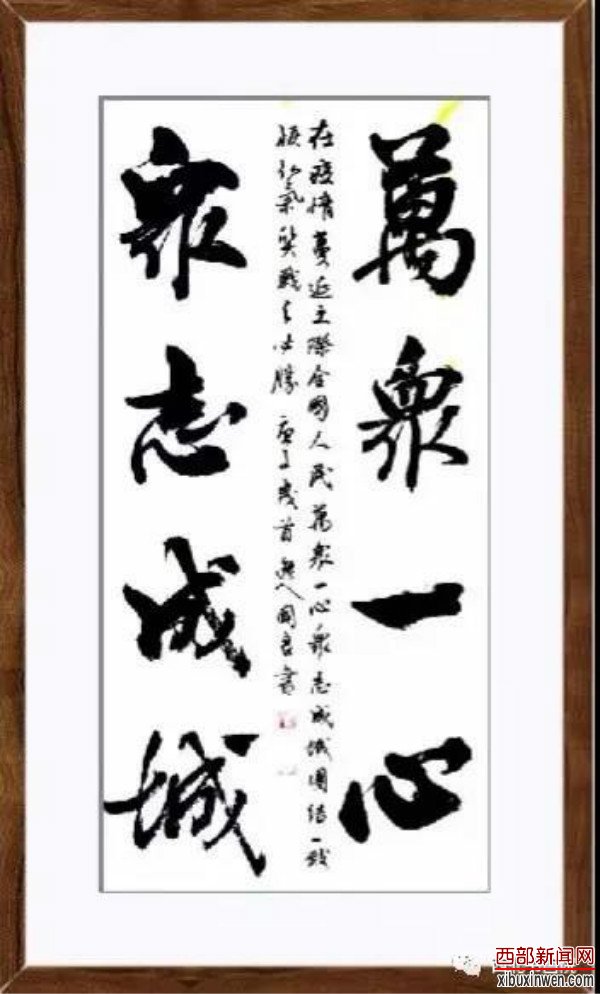 萬衆一心
在疫情蔓延之際全國人民萬衆一心衆志成城團結一致
戰之必勝 庚子歲首
書
衆志成城
西部新闻网
xibuxinwen.com